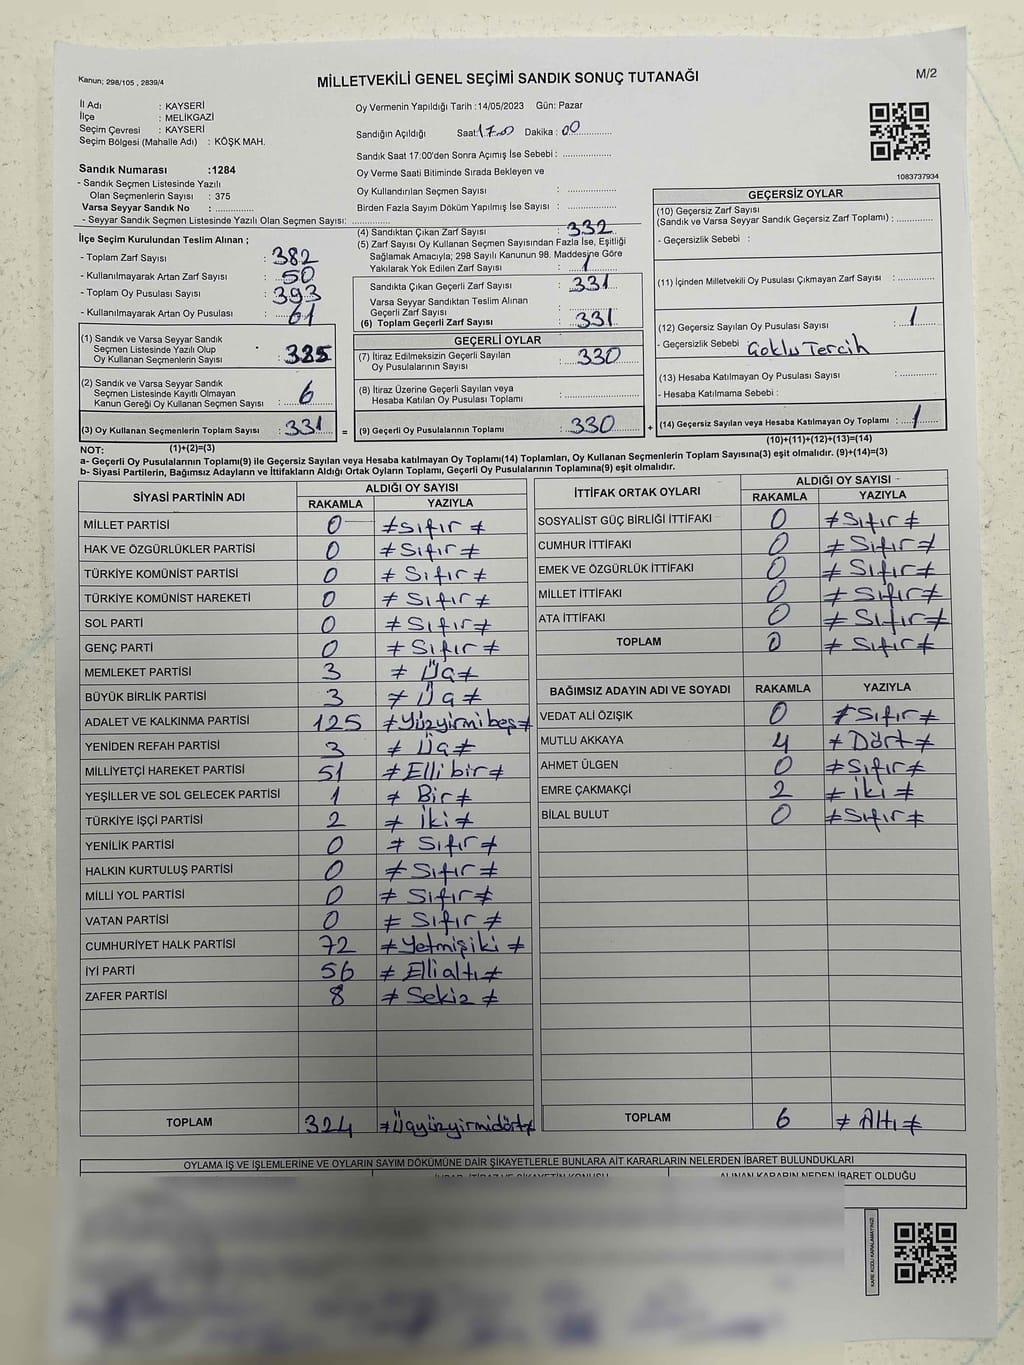 Kanun; 298/105 , 2839/4
MİLLETVEKİLİ GENEL SEÇİMİ SANDIK SONUÇ TUTANAĞI
M/2
İl Adı : KAYSERİ
İlçe : MELİKGAZİ
Seçim Çevresi : KAYSERİ
Seçim Bölgesi (Mahalle Adı) : KÖŞK MAH.
Sandık Numarası :1284
- Sandık Seçmen Listesinde Yazılı
Olan Seçmenlerin Sayısı : 375
Varsa Seyyar Sandık No : ..............
- Seyyar Sandık Seçmen Listesinde Yazılı Olan Seçmen Sayısı: ..............
Oy Vermenin Yapıldığı Tarih :14/05/2023 Gün: Pazar
Sandığın Açıldığı Saat: 17.00 Dakika : 00
Sandık Saat 17:00'den Sonra Açımış İse Sebebi : ..............
Oy Verme Saati Bitiminde Sırada Bekleyen ve
Oy Kullandırılan Seçmen Sayısı : ..............
Birden Fazla Sayım Döküm Yapılmış İse Sayısı : ..............
1083737934
İlçe Seçim Kurulundan Teslim Alınan ;
- Toplam Zarf Sayısı : 382
- Kullanılmayarak Artan Zarf Sayısı : 50
- Toplam Oy Pusulası Sayısı : 393
- Kullanılmayarak Artan Oy Pusulası : 61
(1) Sandık ve Varsa Seyyar Sandık
Seçmen Listesinde Yazılı Olup
Oy Kullanan Seçmenlerin Sayısı : 325
(2) Sandık ve Varsa Seyyar Sandık
Seçmen Listesinde Kayıtlı Olmayan
Kanun Gereği Oy Kullanan Seçmen Sayısı : 6
(3) Oy Kullanan Seçmenlerin Toplam Sayısı : 331 =
(4) Sandıktan Çıkan Zarf Sayısı : 332
(5) Zarf Sayısı Oy Kullanan Seçmen Sayısından Fazla İse, Eşitliği
Sağlamak Amacıyla; 298 Sayılı Kanunun 98. Maddesine Göre
Yakılarak Yok Edilen Zarf Sayısı : 1
Sandıkta Çıkan Geçerli Zarf Sayısı : 331
Varsa Seyyar Sandıktan Teslim Alınan
Geçerli Zarf Sayısı : ..............
(6) Toplam Geçerli Zarf Sayısı : 331
GEÇERLİ OYLAR
(7) İtiraz Edilmeksizin Geçerli Sayılan
Oy Pusulalarının Sayısı : 330
(8) İtiraz Üzerine Geçerli Sayılan veya
Hesaba Katılan Oy Pusulası Toplamı : ..............
(9) Geçerli Oy Pusulalarının Toplamı : 330 +
GEÇERSİZ OYLAR
(10) Geçersiz Zarf Sayısı
(Sandık ve Varsa Seyyar Sandık Geçersiz Zarf Toplamı) : ..............
- Geçersizlik Sebebi :
(11) İçinden Milletvekili Oy Pusulası Çıkmayan Zarf Sayısı : ..............
(12) Geçersiz Sayılan Oy Pusulası Sayısı : 1
- Geçersizlik Sebebi : Çoklu Tercih
(13) Hesaba Katılmayan Oy Pusulası Sayısı : ..............
- Hesaba Katılmama Sebebi :
(14) Geçersiz Sayılan veya Hesaba Katılmayan Oy Toplamı : 1
NOT: (1)+(2)=(3) (10)+(11)+(12)+(13)=(14)
a- Geçerli Oy Pusulalarının Toplamı(9) ile Geçersiz Sayılan veya Hesaba katılmayan Oy Toplamı(14) Toplamları, Oy Kullanan Seçmenlerin Toplam Sayısına(3) eşit olmalıdır. (9)+(14)=(3)
b- Siyasi Partilerin, Bağımsız Adayların ve İttifakların Aldığı Ortak Oyların Toplamı, Geçerli Oy Pusulalarının Toplamına(9) eşit olmalıdır.
SİYASİ PARTİNİN ADI ALDIĞI OY SAYISI
RAKAMLA YAZIYLA
MİLLET PARTİSİ 0 ≠Sıfır≠
HAK VE ÖZGÜRLÜKLER PARTİSİ 0 ≠Sıfır≠
TÜRKİYE KOMÜNİST PARTİSİ 0 ≠Sıfır≠
TÜRKİYE KOMÜNİST HAREKETİ 0 ≠Sıfır≠
SOL PARTİ 0 ≠Sıfır≠
GENÇ PARTİ 0 ≠Sıfır≠
MEMLEKET PARTİSİ 3 ≠Üç≠
BÜYÜK BİRLİK PARTİSİ 3 ≠Üç≠
ADALET VE KALKINMA PARTİSİ 125 ≠Yüzyirmibeş≠
YENİDEN REFAH PARTİSİ 3 ≠Üç≠
MİLLİYETÇİ HAREKET PARTİSİ 51 ≠Ellibir≠
YEŞİLLER VE SOL GELECEK PARTİSİ 1 ≠Bir≠
TÜRKİYE İŞÇİ PARTİSİ 2 ≠İki≠
YENİLİK PARTİSİ 0 ≠Sıfır≠
HALKIN KURTULUŞ PARTİSİ 0 ≠Sıfır≠
MİLLİ YOL PARTİSİ 0 ≠Sıfır≠
VATAN PARTİSİ 0 ≠Sıfır≠
CUMHURİYET HALK PARTİSİ 72 ≠Yetmişiki≠
İYİ PARTİ 56 ≠Ellialtı≠
ZAFER PARTİSİ 8 ≠Sekiz≠
TOPLAM 324 ≠Üçyüzyirmidört≠
İTTİFAK ORTAK OYLARI ALDIĞI OY SAYISI
RAKAMLA YAZIYLA
SOSYALİST GÜÇ BİRLİĞİ İTTİFAKI 0 ≠Sıfır≠
CUMHUR İTTİFAKI 0 ≠Sıfır≠
EMEK VE ÖZGÜRLÜK İTTİFAKI 0 ≠Sıfır≠
MİLLET İTTİFAKI 0 ≠Sıfır≠
ATA İTTİFAKI 0 ≠Sıfır≠
TOPLAM 0 ≠Sıfır≠
BAĞIMSIZ ADAYIN ADI VE SOYADI RAKAMLA YAZIYLA
VEDAT ALİ ÖZIŞIK 0 ≠Sıfır≠
MUTLU AKKAYA 4 ≠Dört≠
AHMET ÜLGEN 0 ≠Sıfır≠
EMRE ÇAKMAKÇİ 2 ≠İki≠
BİLAL BULUT 0 ≠Sıfır≠
TOPLAM 6 ≠Altı≠
OYLAMA İŞ VE İŞLEMLERİNE VE OYLARIN SAYIM DÖKÜMÜNE DAİR ŞİKAYETLERLE BUNLARA AİT KARARLARIN NELERDEN İBARET BULUNDUKLARI
ALINAN KARARIN NEDEN İBARET OLDUĞU
KARE KODU KARALAMAYINIZ!